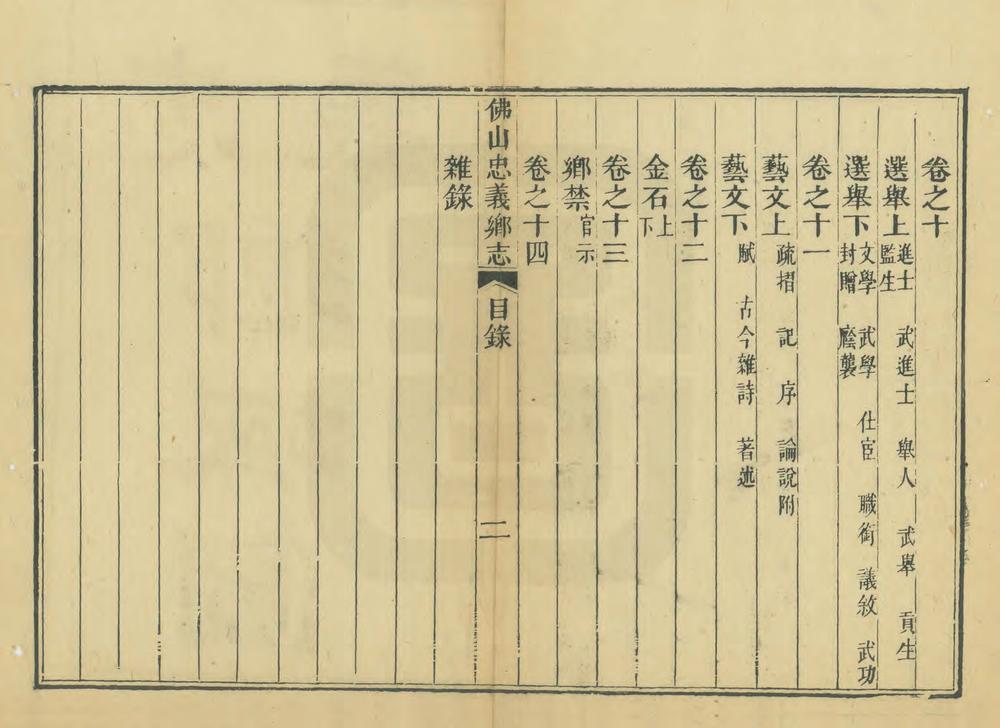 卷之十
選舉上 進士 武進士 舉人 武舉 貢生 監生
選舉下 文學 武學 仕宦 職銜 議敘 武功 封贈 廕襲
卷之十一
藝文上 疏摺 記 序 論說附
藝文下 賦 古今雜詩 著述
卷之十二
金石上下
卷之十三
鄉禁 官示
卷之十四
佛山忠義鄉志 目錄 二
雜錄